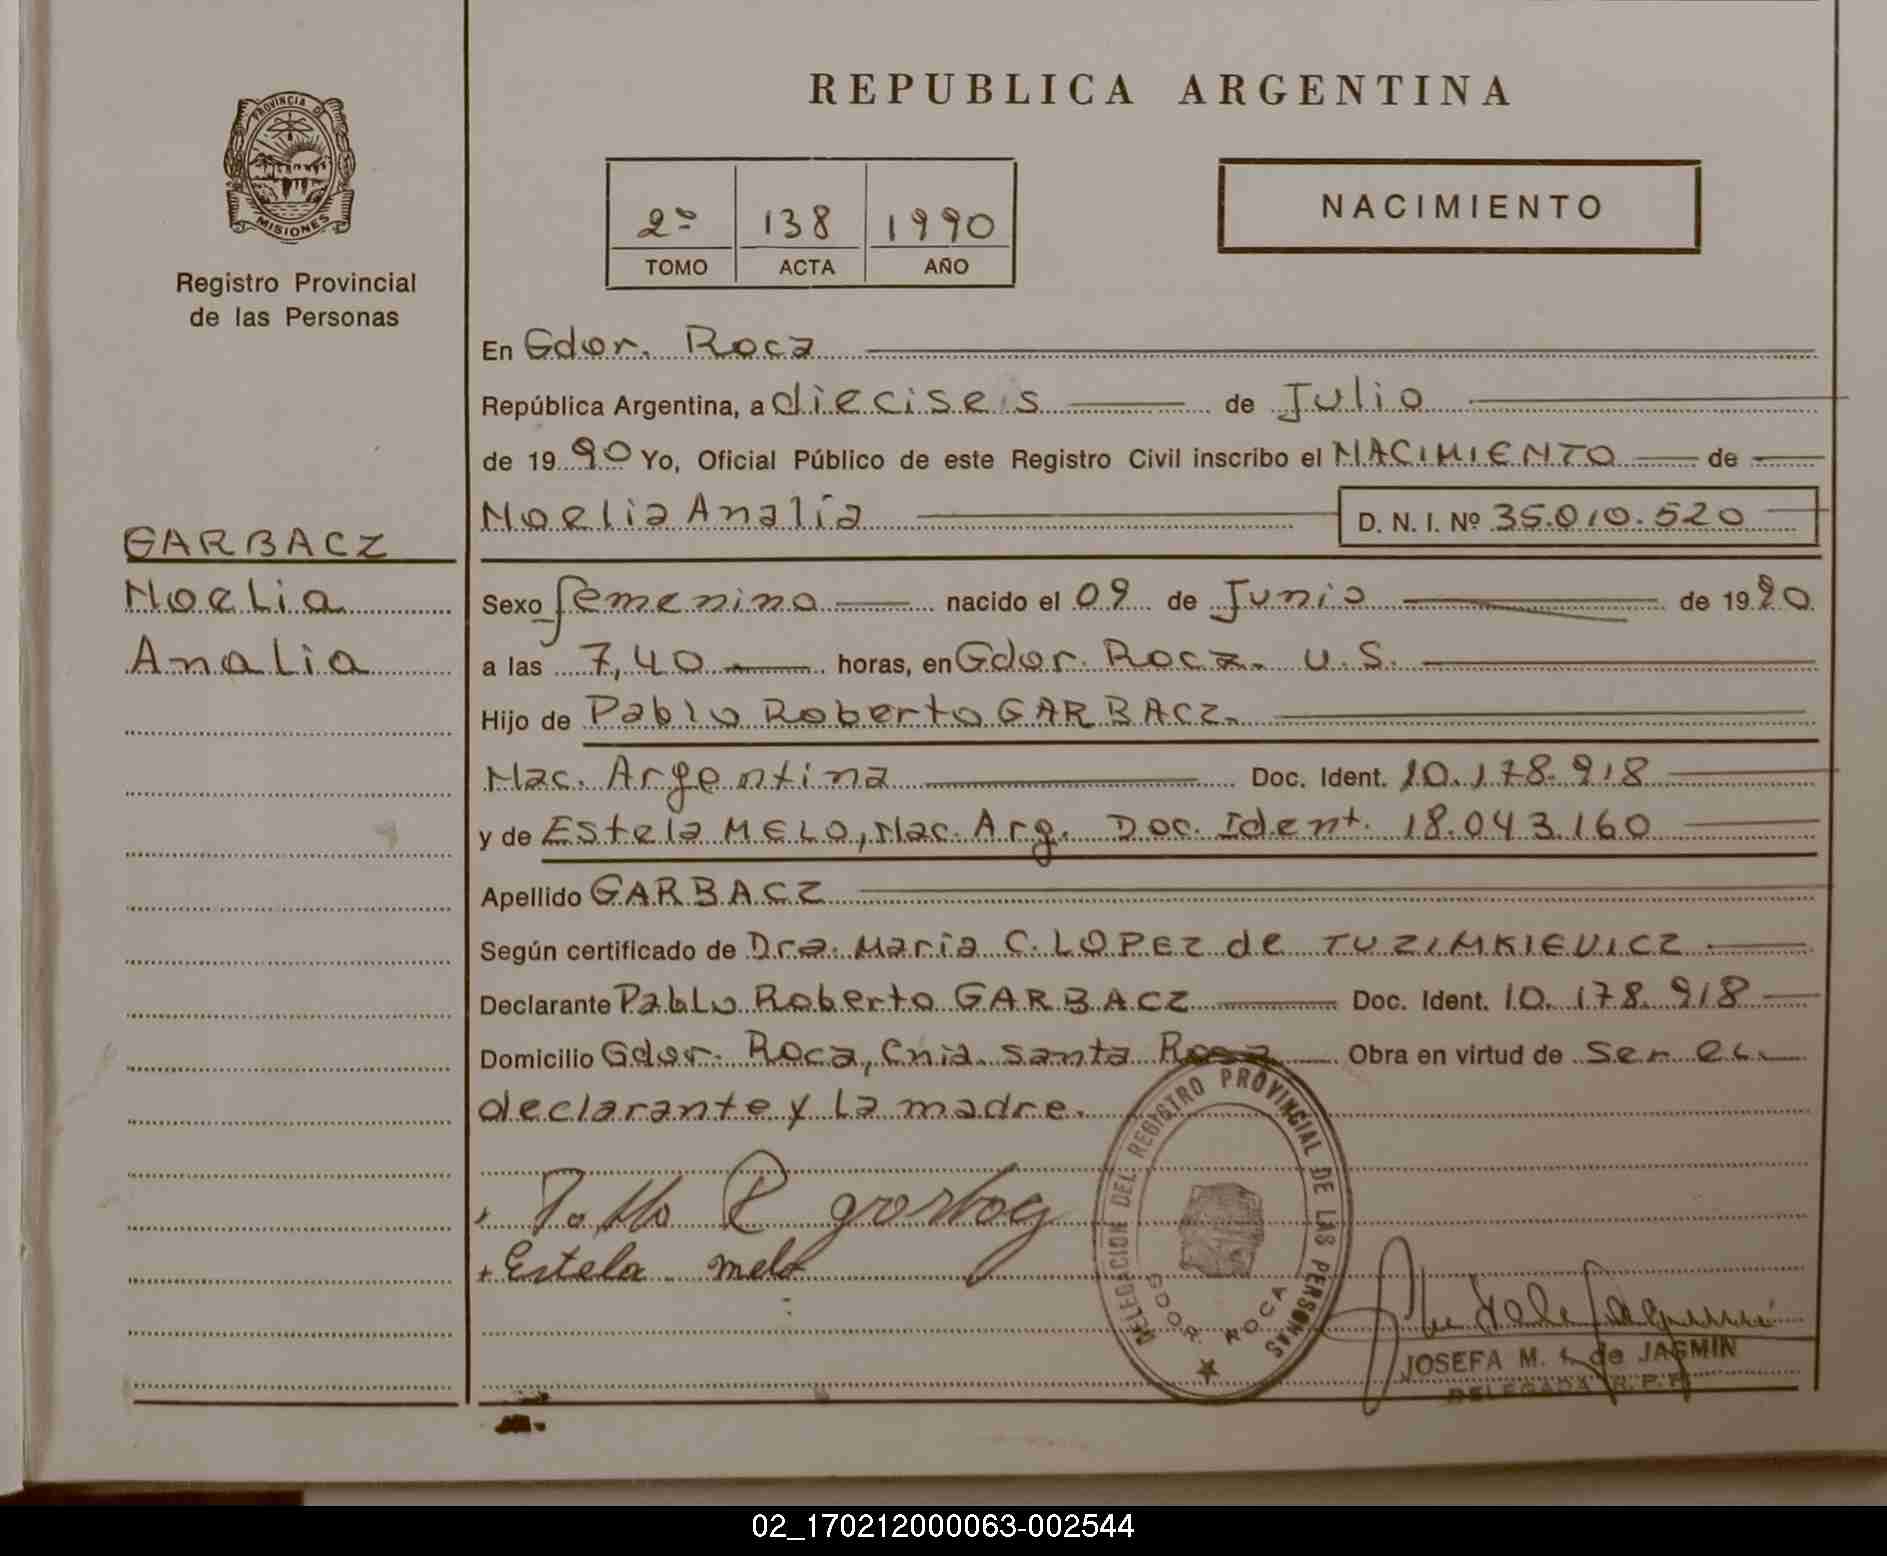 PROVINCIA DE
MISIONES
Registro Provincial
de las Personas
GARBACZ
Noelia
Analia
REPUBLICA ARGENTINA
2º 138 1990
TOMO ACTA AÑO
NACIMIENTO
En Gdor. Roca
República Argentina, a dieciseis de Julio
de 1990 Yo, Oficial Público de este Registro Civil inscribo el NACIMIENTO de
Noelia Analía D. N. I. Nº 35.010.520
Sexo femenino nacido el 09 de Junio de 1990
a las 7,40 horas, en Gdor. Roca. U.S.
Hijo de Pablo Roberto GARBACZ
Nac. Argentina Doc. Ident. 10.178.918
y de Estela MELO, Nac. Arg. Doc. Ident. 18.043.160
Apellido GARBACZ
Según certificado de Dra. María C. LOPEZ de TUZIMKIEVICZ
Declarante Pablo Roberto GARBACZ Doc. Ident. 10.178.918
Domicilio Gdor. Roca, Cnia. Santa Rosa Obra en virtud de ser el
declarante y la madre.
Estela melo
DELEGACION DEL REGISTRO PROVINCIAL DE LAS PERSONAS
GDOR. ROCA
JOSEFA M. de JASMIN
DELEGADA R.P.P.
02_170212000063-002544